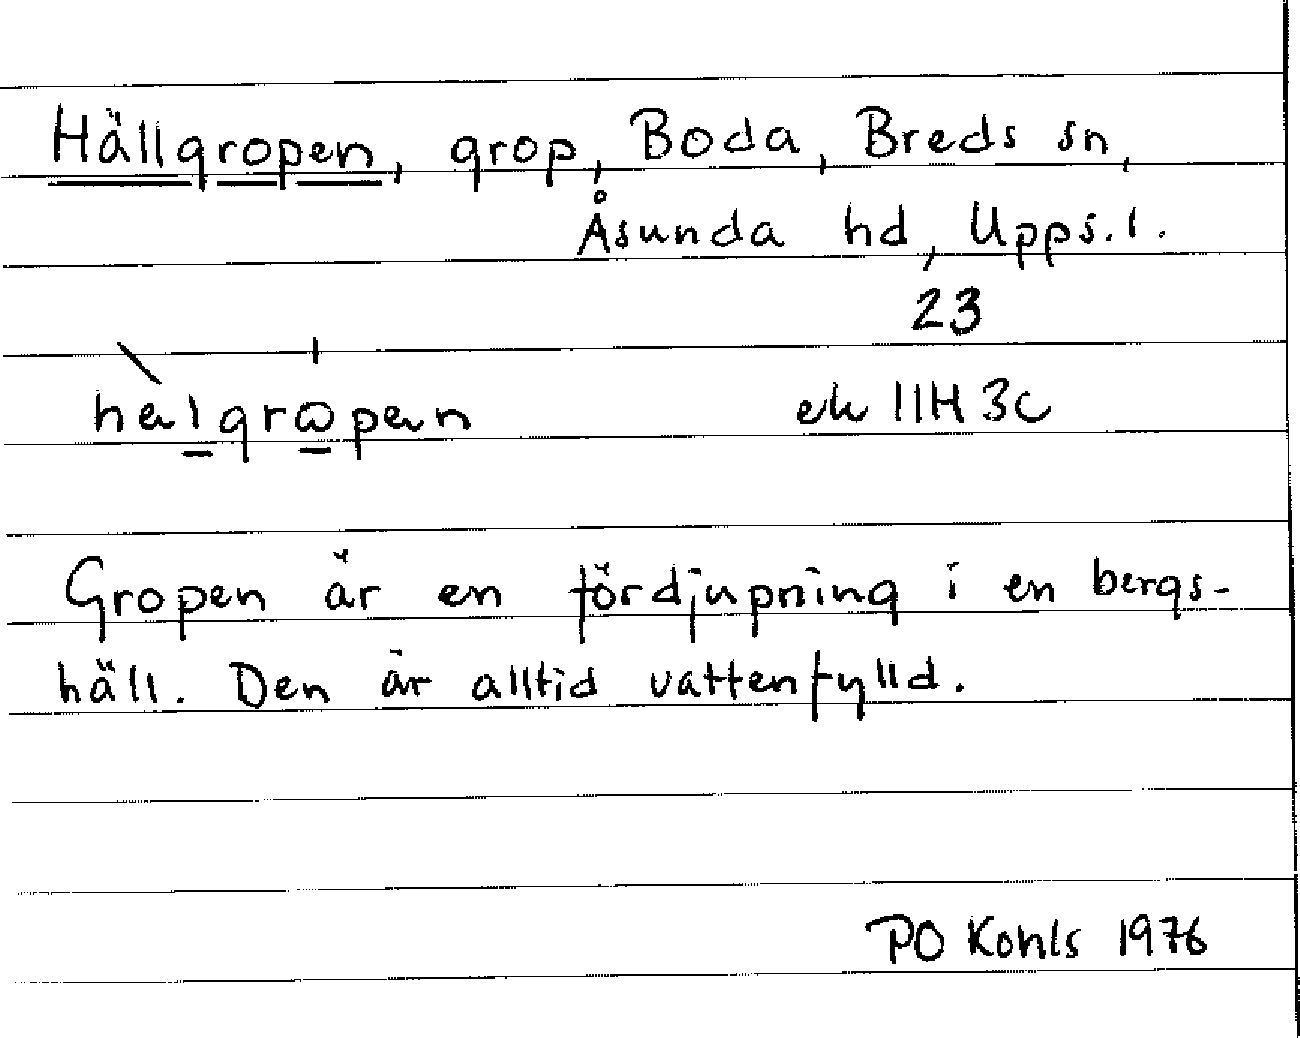 Hällgropen, grop, Boda, Breds sn,
Åsunda hd, Upps. l.
23
hälgrωpen ek 11H 3c
Gropen är en fördjupning i en bergs-
häll. Den är alltid vattenfylld.
PO Kohls 1976